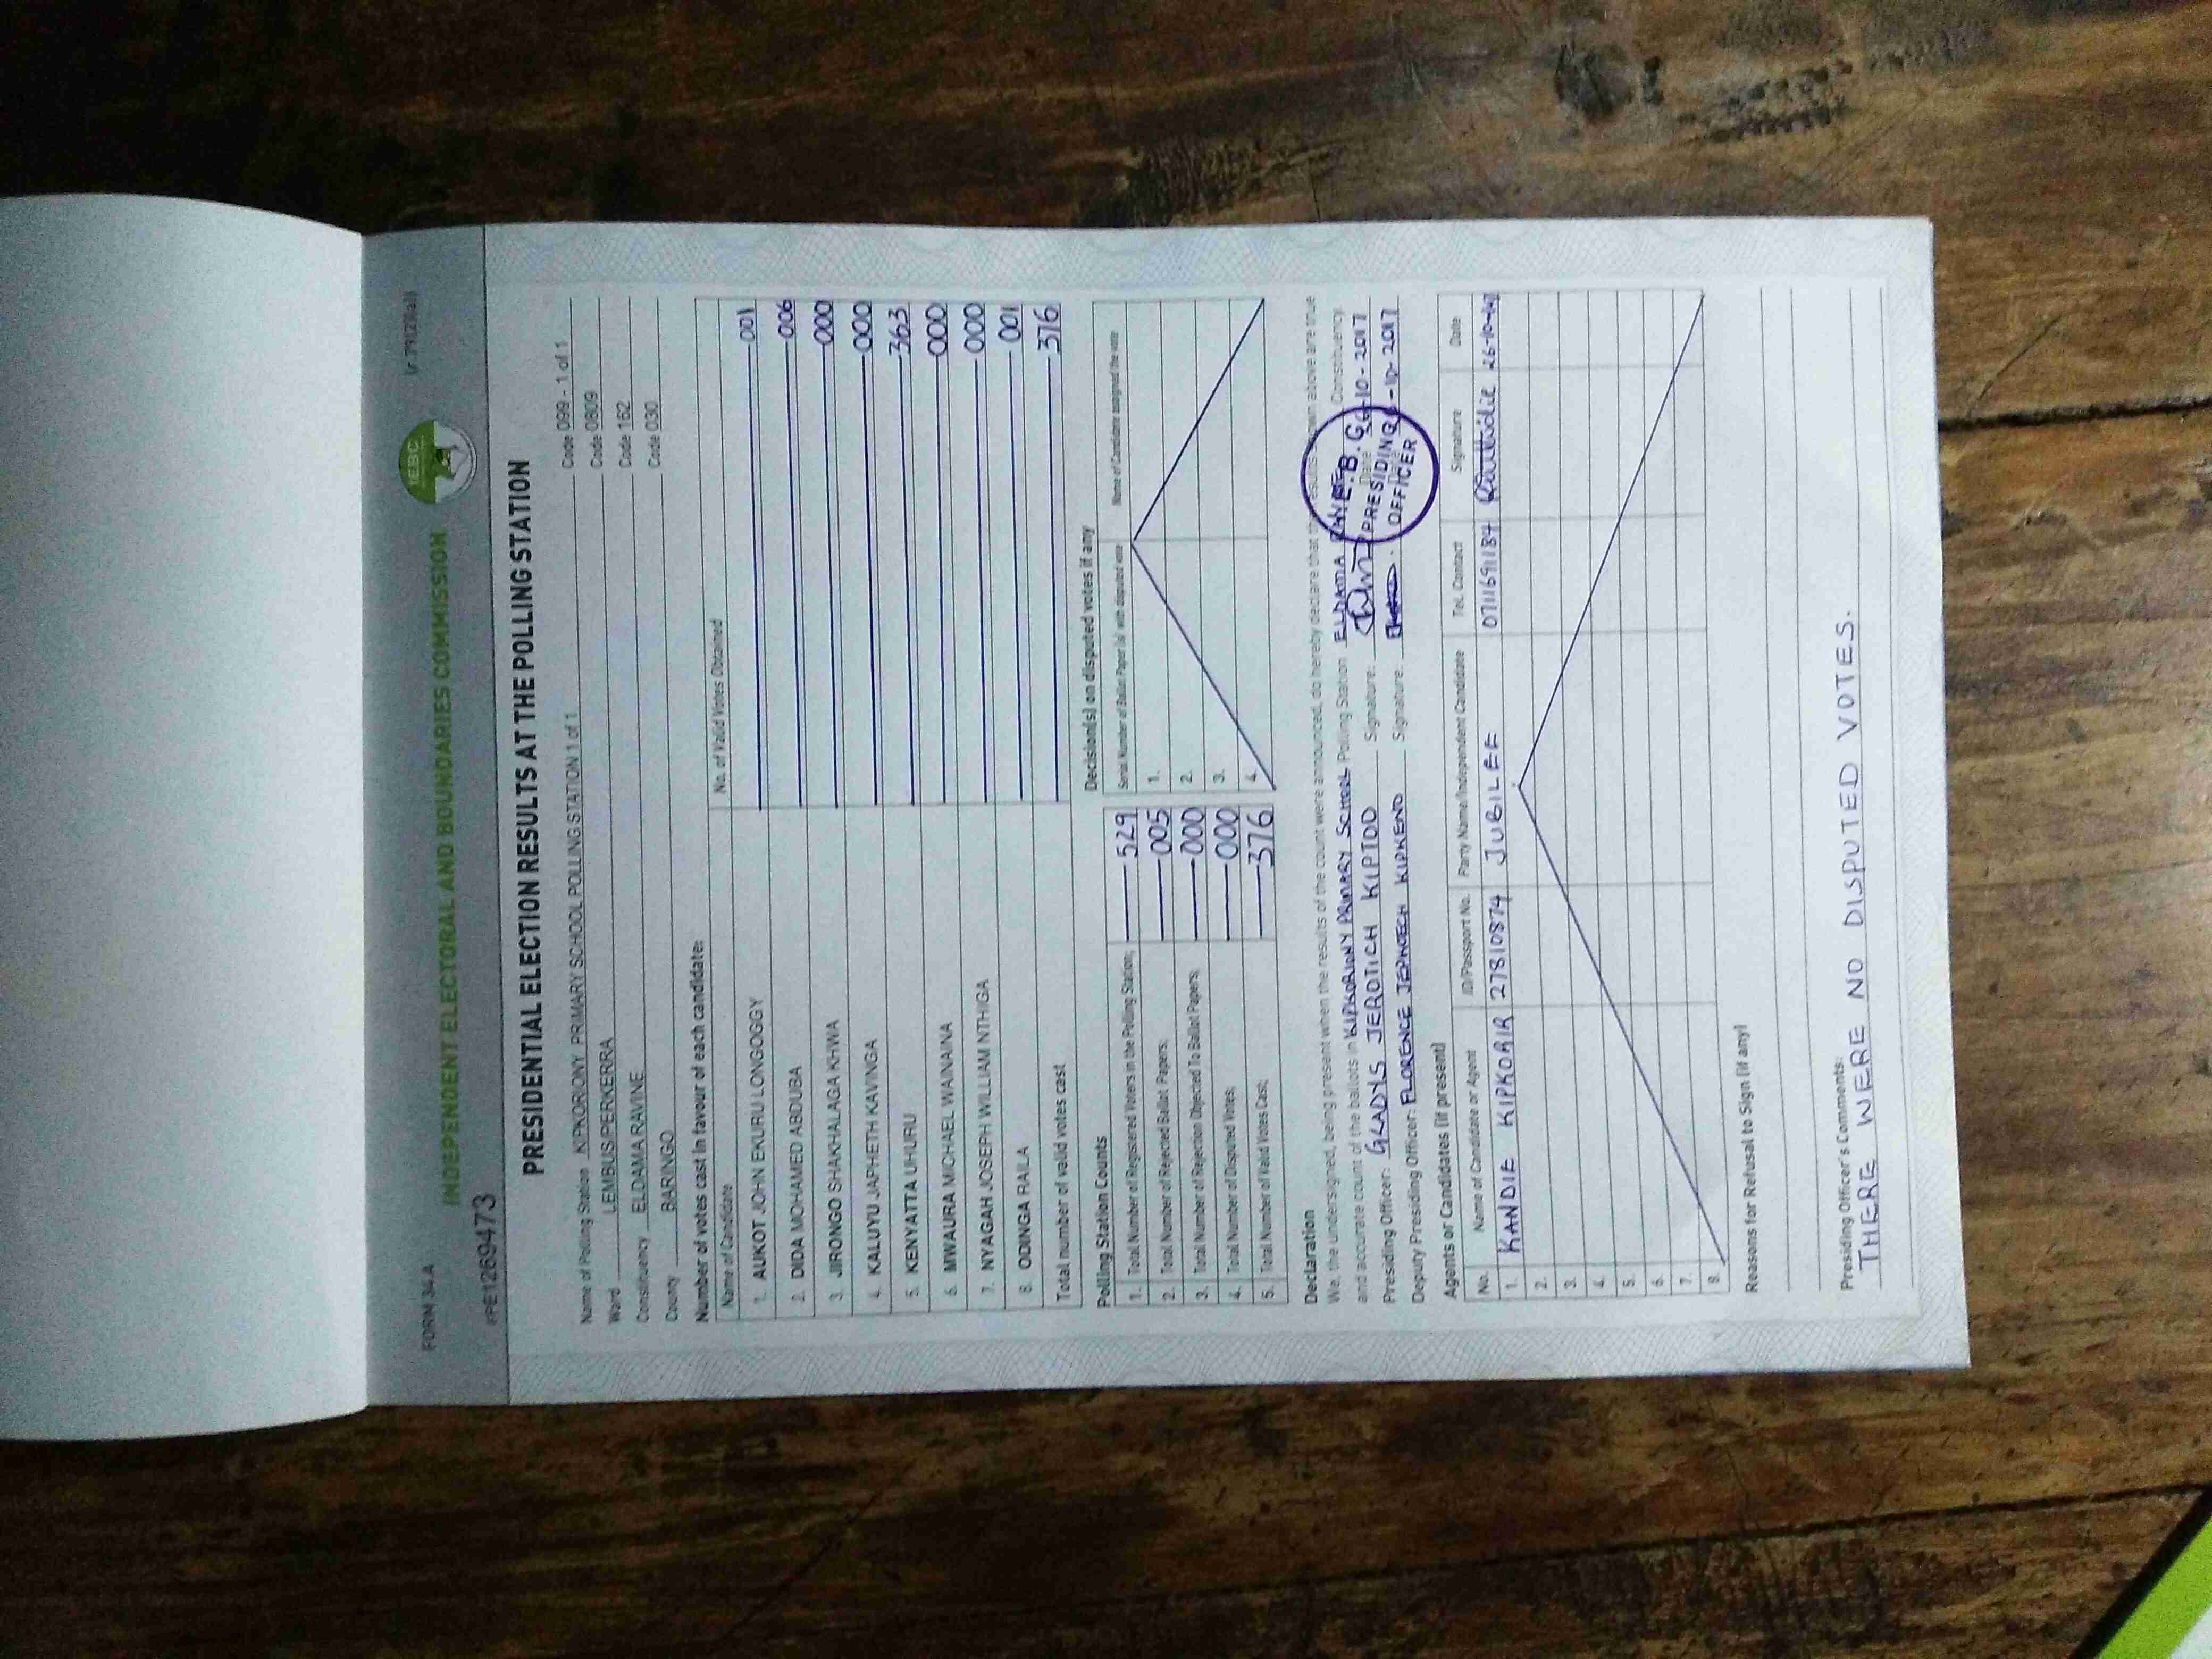 FORM 34A
INDEPENDENT ELECTORAL AND BOUNDARIES COMMISSION
IEBC
PE1269473
PRESIDENTIAL ELECTION RESULTS AT THE POLLING STATION
Name of Polling Station KIPKORIONY PRIMARY SCHOOL POLLING STATION 1 of 1 Code 099 - 1 of 1
Ward LEMBUS/PERKERRA Code 0809
Constituency ELDAMA RAVINE Code 162
County BARINGO Code 030
Number of votes cast in favour of each candidate:
Name of Candidate No. of Valid Votes Obtained
1. AUKOT JOHN EKURU LONGOGGY 001
2. DIDA MOHAMED ABDUBA 006
3. JIRONGO SHAKHALAGA KHWA 000
4. KALUYU JAPHETH KAVINGA 000
5. KENYATTA UHURU 363
6. MWAURA MICHAEL WAINAINA 000
7. NYAGAH JOSEPH WILLIAM NTHIGA 000
8. ODINGA RAILA 001
Total number of valid votes cast 376
Polling Station Counts
1. Total Number of Registered Voters in the Polling Station; 529
2. Total Number of Rejected Ballot Papers; 005
3. Total Number of Rejection Objected To Ballot Papers; 000
4. Total Number of Disputed Votes; 000
5. Total Number of Valid Votes Cast; 376
Decision(s) on disputed votes if any
Serial Number of Ballot Paper (s) with disputed vote Name of Candidate assigned the vote
1.
2.
3.
4.
Declaration
We, the undersigned, being present when the results of the count were announced, do hereby declare that the results shown above are true
and accurate count of the ballots in KIPKORIONY PRIMARY SCHOOL Polling Station ELDAMA Constituency.
Presiding Officer: GLADYS JEROTICH KIPTOO Signature: Date 26-10-2017
Deputy Presiding Officer: FLORENCE JEPKOECH KIPKENO Signature: -10-2017
PRESIDING
OFFICER
Agents or Candidates (if present)
No. Name of Candidate or Agent ID/Passport No. Party Name/Independent Candidate Tel. Contact Signature Date
1. KANDIE KIPKORIR 27810874 JUBILEE 0711691184 26-10-2017
2.
3.
4.
5.
6.
7.
8.
Reasons for Refusal to Sign (if any)
Presiding Officer's Comments:
THERE WERE NO DISPUTED VOTES.